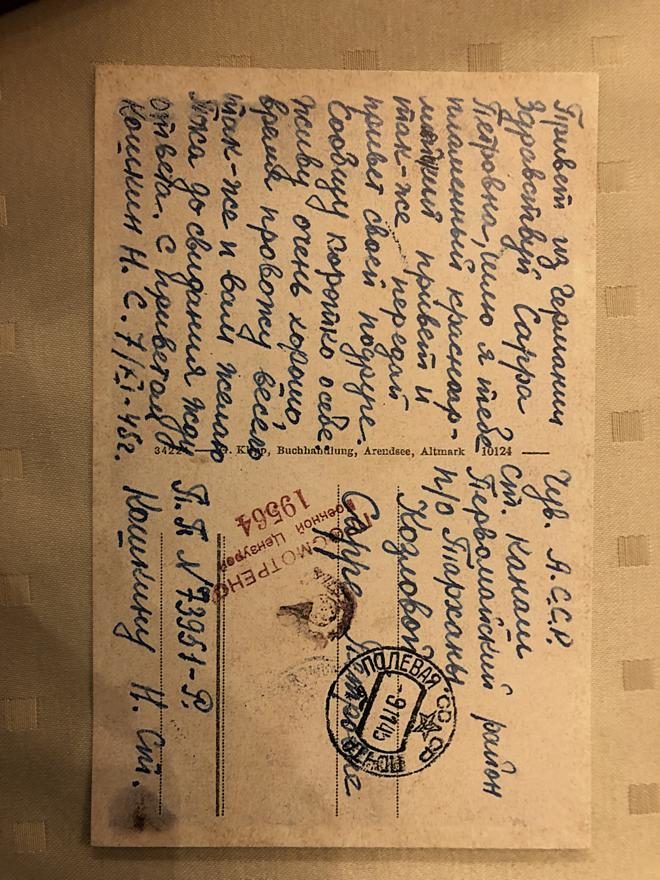 Привет из Германии
Здравствуй Сарра
Петровна, шлю я тебе
пламенный красноар-
мейский привет и
так-же передай
привет своей подруге.
Сообщу коротко о себе,
живу очень хорошо
время провожу весело
так-же и вам желаю
Пока до свидания жду
ответа. С приветом
Кошкин Н. С. 7/XI-45г.
34224 Buchhandlung, Arendsee, Altmark 10124
Чув. А.С.С.Р.
ст. Канаш
Первомайский район
п/о Тарханы
Козловой
Сарре Петровне
П.П. N 73951-Р.
Кошкину Н. Ст.
ПРОСМОТРЕНО
Военной Цензурой
19564
ПОЛЕВАЯ ПОЧТА
СССР
9 11 45